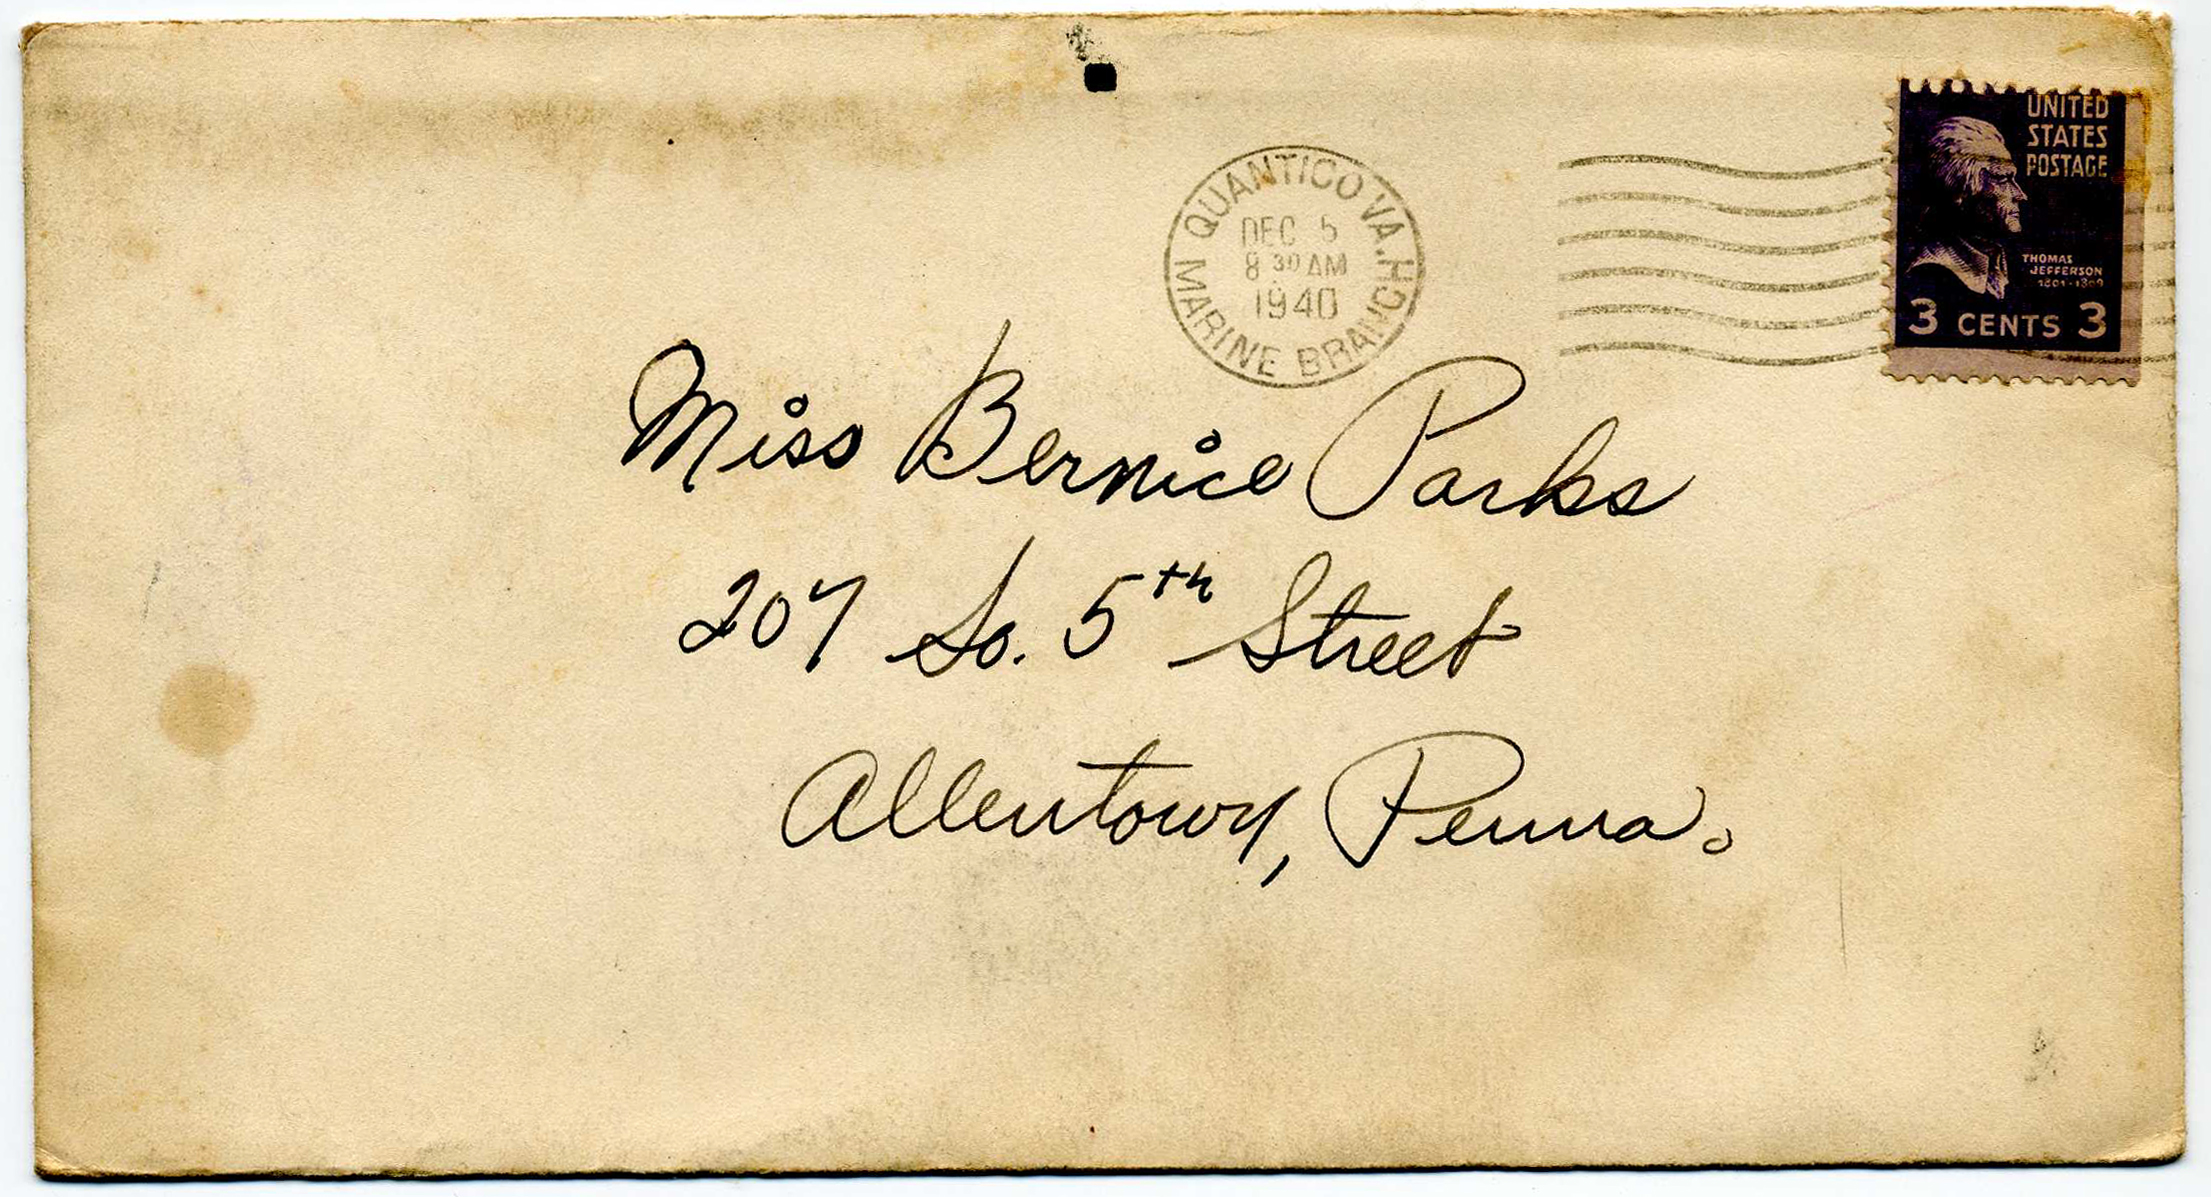 UNITED
STATES
POSTAGE
THOMAS
JEFFERSON
1801-1809
3 CENTS 3
QUANTICO VA.
DEC 5
8 30 AM
1940
MARINE BRANCH
Miss Bernice Parks
207 So. 5th Street
Allentown, Penna.